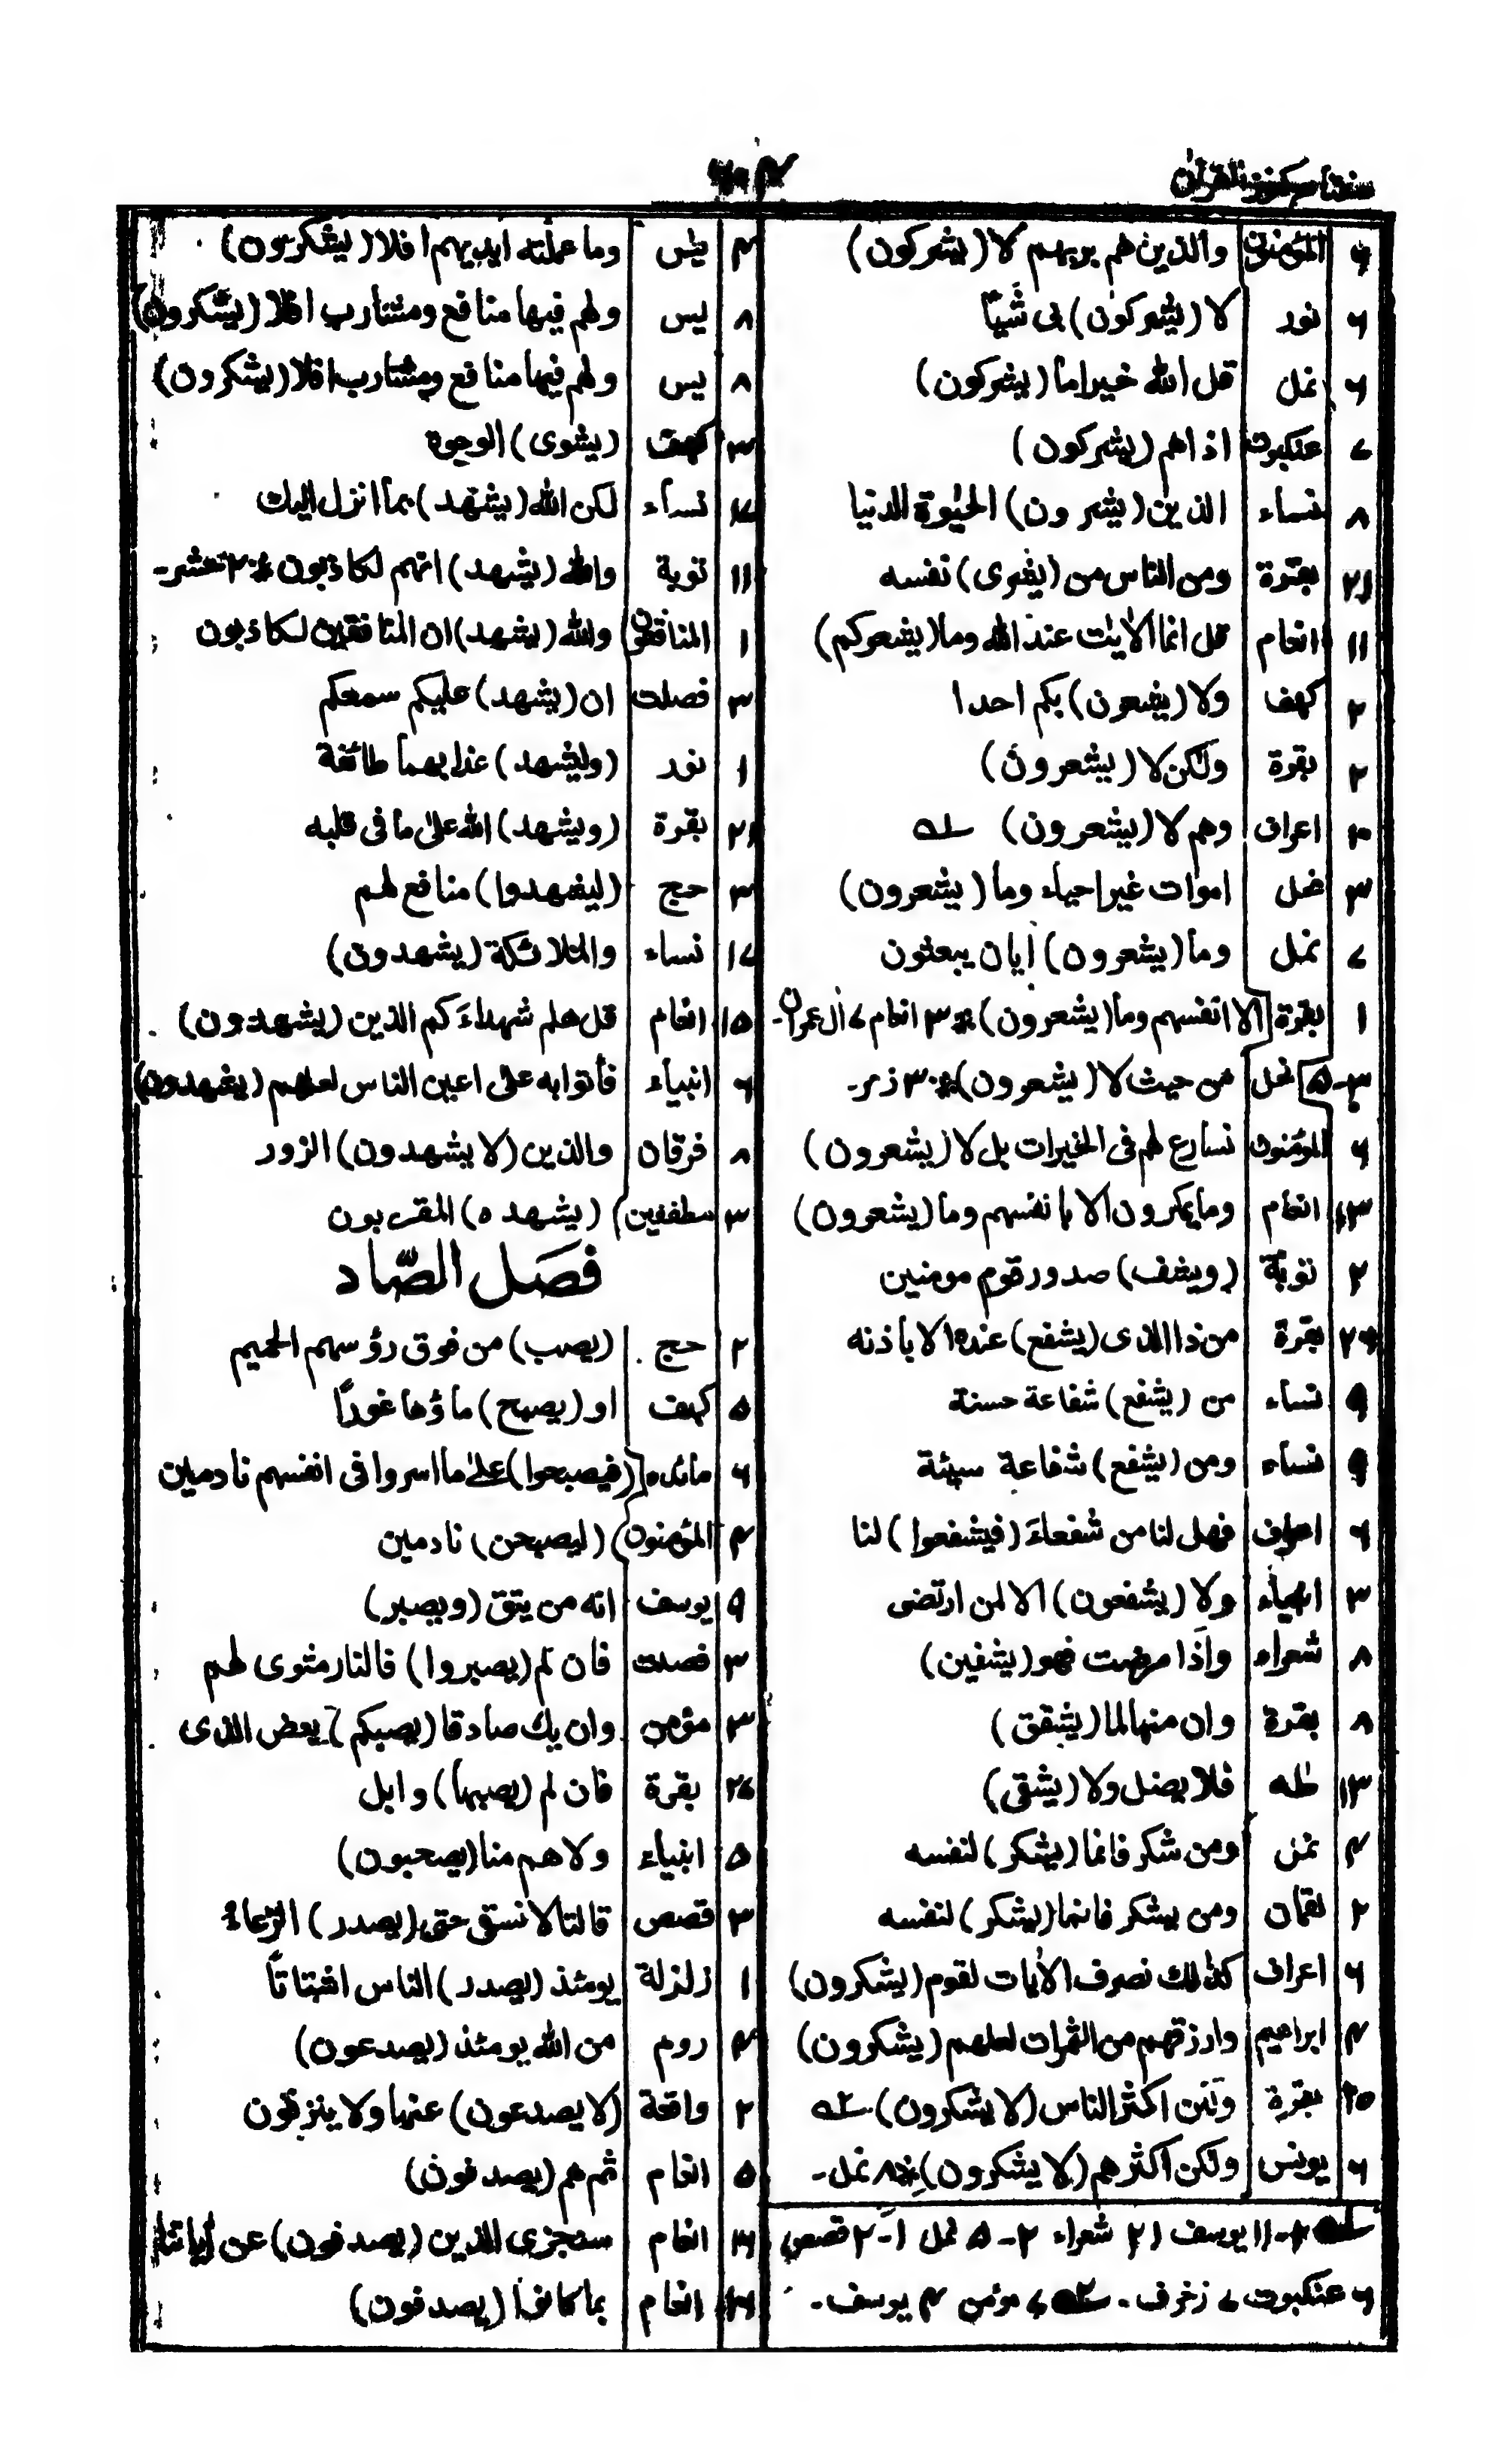 مفتاح كنوز القرآن
٦٠٤
٤ المؤمنون والذين هم بربهم لا (يشركون)
٦ نور لا (يشركون) بى شيئا
٦ نمل قل الله خير اما (يشركون)
٧ عنكبوت اذاهم (يشركون)
٨ نساء الذين (يشرون) الحيٰوة الدنيا
٢١ بقرة ومن الناس من (يشرى) نفسه
١١ انعام قل انما الايٰت عند الله وما (يشعركم)
٢ كهف ولا (يشعرون) بكم احدا
٢ بقرة ولكن لا (يشعرون)
١٠ اعراف وهم لا (يشعرون) ــله
٣ نحل اموات غير احياء وما (يشعرون)
٧ نمل وما (يشعرون) ايان يبعثون
١ بقرة الا انفسهم وما (يشعرون) * ٣ انعام ٧ اٰل عمران-
٣-٥ نحل من حيث لا (يشعرون) * ٣ زمر-
٤ المؤمنون نسارع لهم فى الخيرات بل لا (يشعرون)
١٣ انعام وما يمكرون الا بانفسهم وما (يشعرون)
٢ توبة (ويشف) صدور قوم مومنين
٢٤ بقرة من ذا الذى (يشفع) عنده الا باذنه
٩ نساء من (يشفع) شفاعة حسنة
٩ نساء ومن (يشفع) شفاعة سيئة
٦ اعراف فهل لنا من شفعاء (فيشفعوا) لنا
٣ انبياء ولا (يشفعون) الا لمن ارتضى
٨ شعراء واذا مرضت فهو (يشفين)
٨ بقرة وان منها لما (يشقق)
١٣ طٰه فلا يضل ولا (يشقى)
٣ نمل ومن شكر فانما (يشكر) لنفسه
٢ لقمان ومن يشكر فانما (يشكر) لنفسه
٦ اعراف كذالك نصرف الاٰيات لقوم (يشكرون)
٤ ابراهيم وارزقهم من الثمرات لعلهم (يشكرون)
٢٥ بقرة ولكن اكثر الناس (لا يشكرون) ــ٢ه
٦ يونس ولكن اكثرهم (لا يشكرون) * ٨ نمل-
١١ يوسف ٢١ شعراء ٢-٥ نمل ١-٢ قصص
٦ عنكبوت ٧ زخرف. ــ٢ه ٧ مؤمن ٤ يوسف.
٣ يٰس وما عملته ايديهم افلا (يشكرون)
٨ يس ولهم فيها منافع ومشارب افلا (يشكرون)
٨ يس ولهم فيها منافع ومشارب افلا (يشكرون)
٣ كهف (يشوى) الوجوه
١٧ نساء لكن الله (يشهد) بما انزل اليك
١١ توبة والله (يشهد) انهم لكاذبون * ٢ حشر-
١ المنافقون والله (يشهد) ان المنافقين لكاذبون
٣ فصلت ان (يشهد) عليكم سمعكم
١ نور (وليشهد) عذابهما طائفة
٢١ بقرة (ويشهد) الله على ما فى قلبه
٣ حج (ليشهدوا) منافع لهم
١٧ نساء والملائكة (يشهدون)
١٥ انعام قل هلم شهداءكم الذين (يشهدون)
٦ انبياء فأتوا به على اعين الناس لعلهم (يشهدون)
٨ فرقان والذين (لا يشهدون) الزور
٣ مطففين (يشهده) المقربون
فصل الصّاد
٢ حج (يصب) من فوق رؤسهم الحميم
٥ كهف او (يصبح) ماؤها غورًا
٦ مائده (فيصبحوا) علىٰ ما اسروا فى انفسهم نادمين
٣ المؤمنون (ليصبحن) نادمين
٩ يوسف انه من يتق (ويصبر)
٣ فصلت فان لم (يصبروا) فالنار مثوى لهم
٣ مؤمن وان يك صادقا (يصبكم) بعض الذى
٢٧ بقرة فان لم (يصبها) وابل
٥ انبياء ولا هم منا (يصحبون)
٣ قصص قالتا لا نسقى حتى (يصدر) الرّعاءُ
١ زلزلة يومئذ (يصدر) الناس اشتاتًا
٤ روم من الله يومئذ (يصدعون)
٢ واقعة (لا يصدعون) عنها ولا ينزفون
٥ انعام ثم هم (يصدفون)
انعام سنجزى الذين (يصدفون) عن اٰياتنا
انعام بما كانوا (يصدفون)